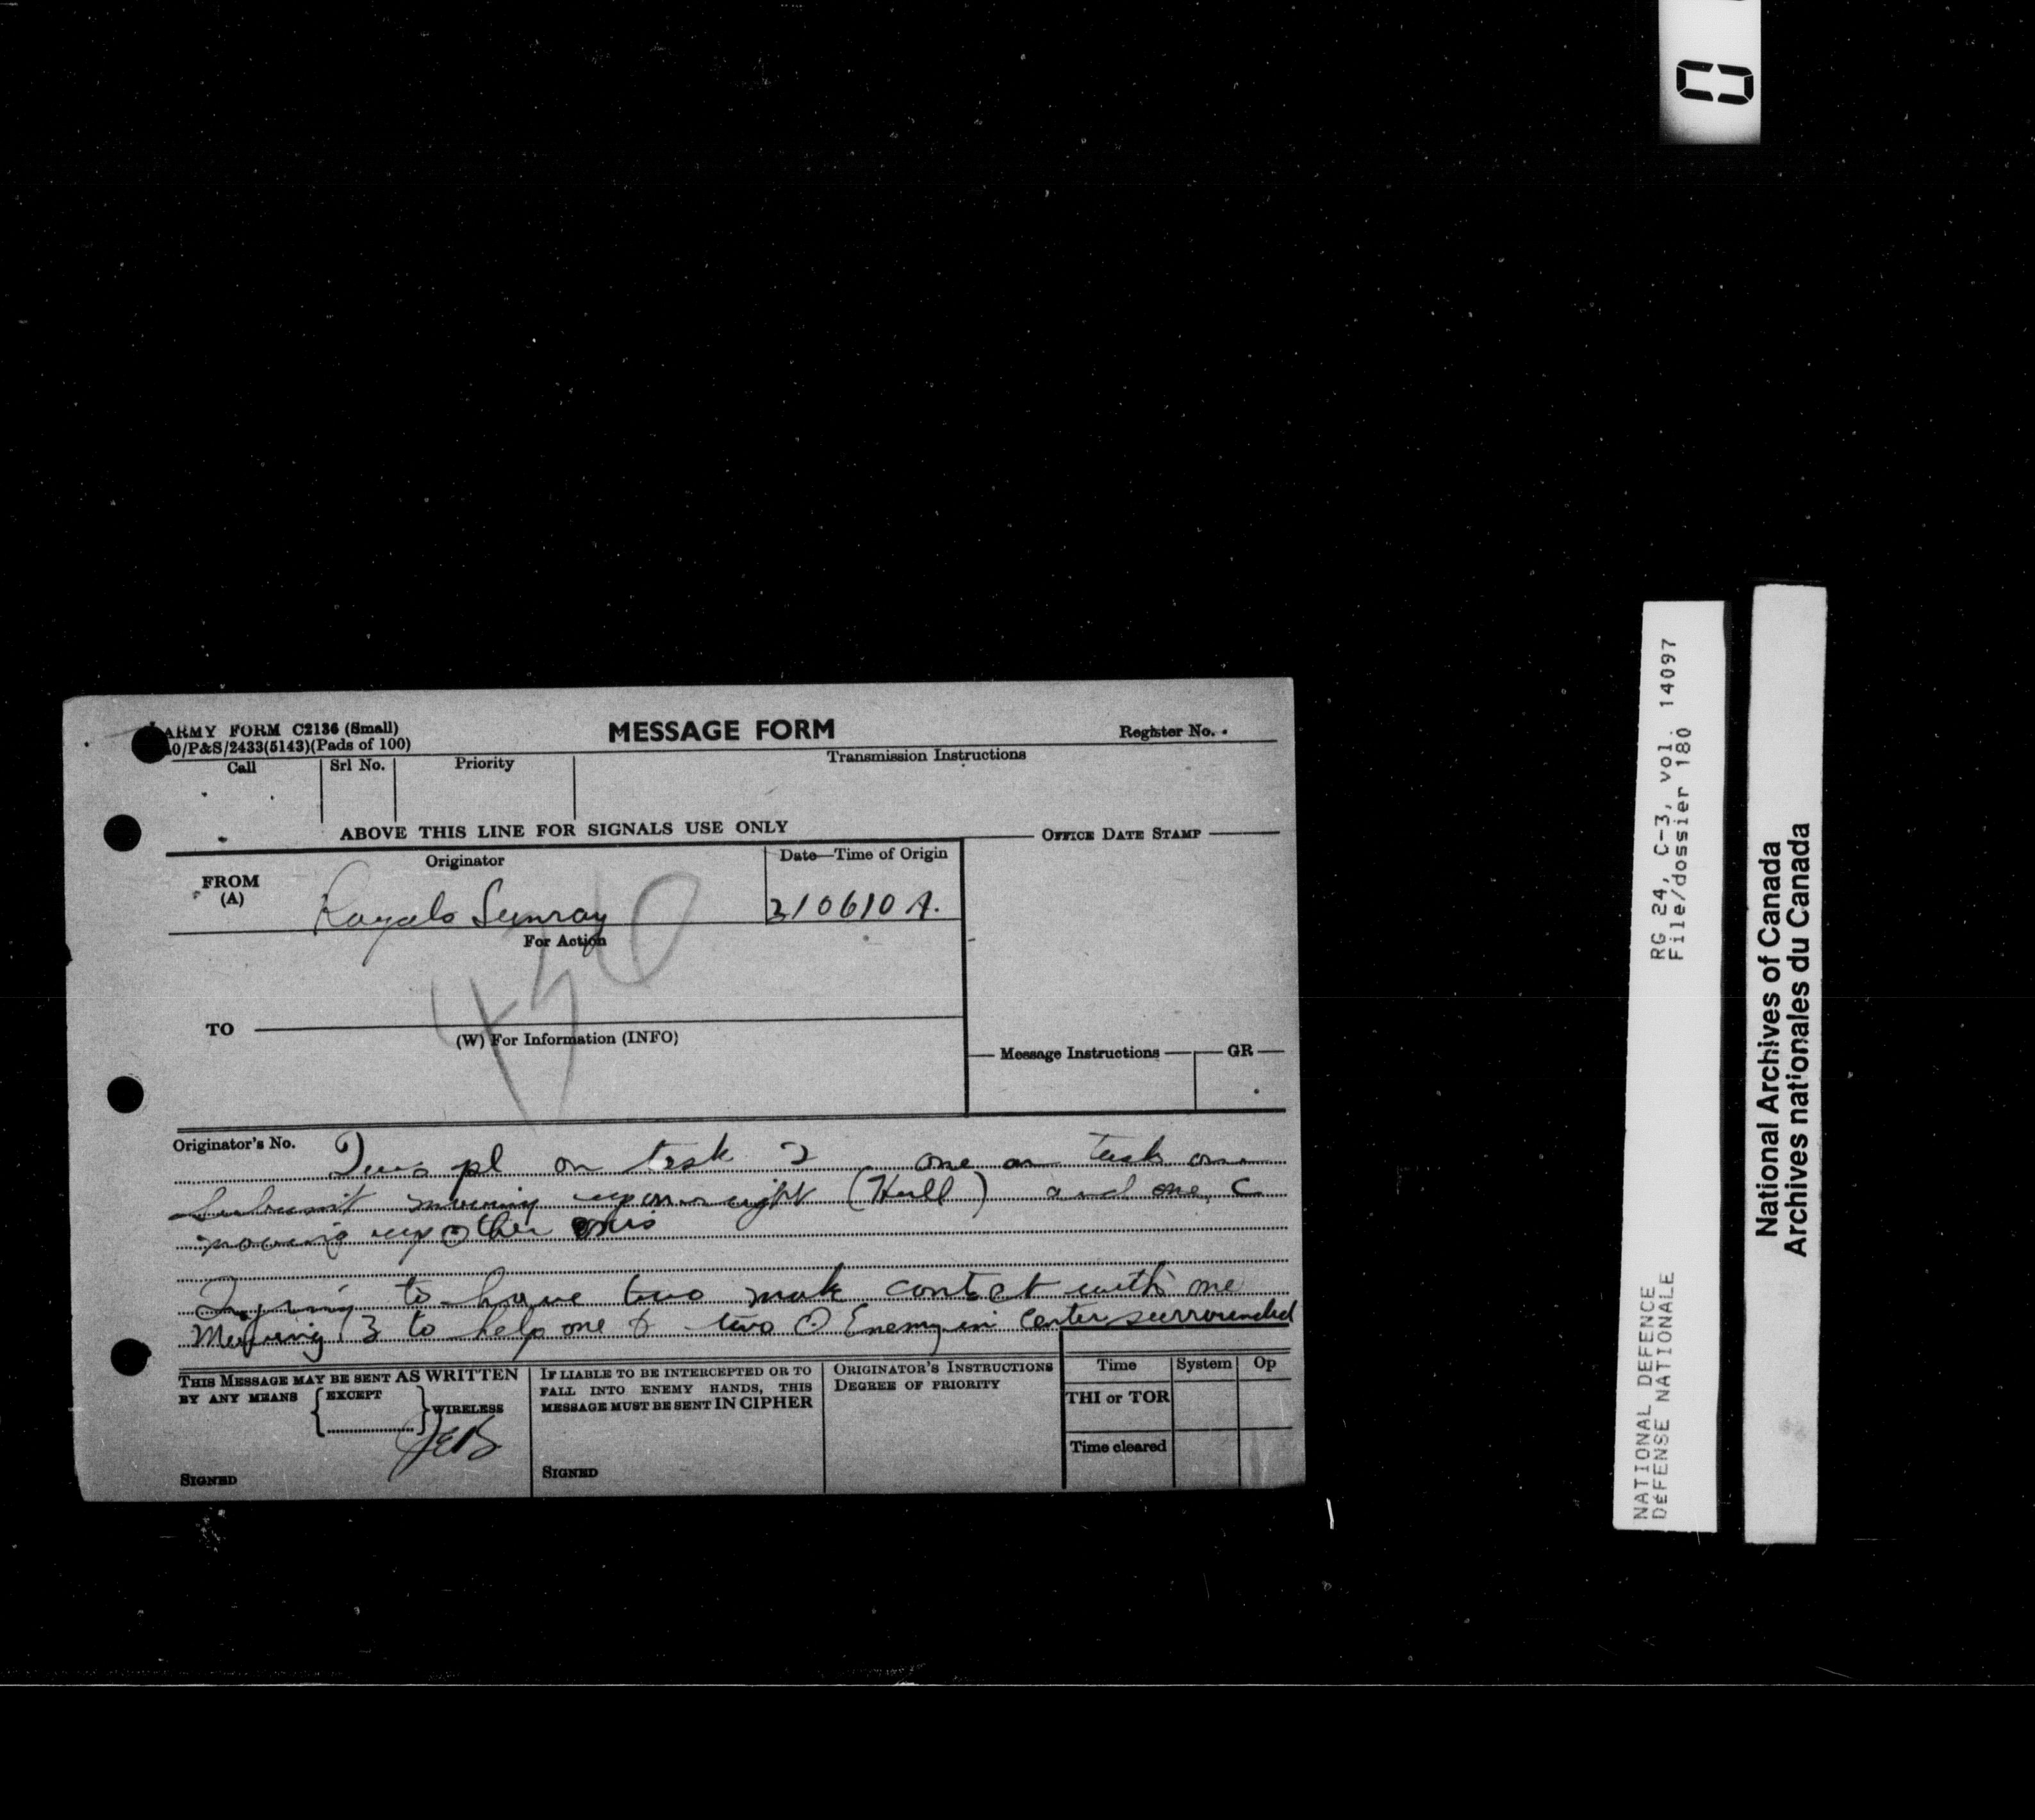 ARMY FORM C2136 (Small)
0/P&S/2433(5143)(Pads of 100)
MESSAGE FORM
Register No.
Call
Srl No.
Priority
Transmission Instructions
ABOVE THIS LINE FOR SIGNALS USE ONLY
OFFICE DATE STAMP
FROM
(A)
Originator
Date—Time of Origin
Royals Sunray
310610 A.
For Action
TO
(W) For Information (INFO)
Message Instructions
GR
Originator's No.
Two pl on task 2 one on task one
Subunit moving up on right (Hull) and one C
moving up other
to have two make contact with one
Moving 3 to help one & two Enemy in center surrounded
THIS MESSAGE MAY BE SENT AS WRITTEN
BY ANY MEANS
EXCEPT
WIRELESS
SIGNED
IF LIABLE TO BE INTERCEPTED OR TO
FALL INTO ENEMY HANDS, THIS
MESSAGE MUST BE SENT IN CIPHER
SIGNED
ORIGINATOR'S INSTRUCTIONS
DEGREE OF PRIORITY
Time
System
Op
THI or TOR
Time cleared
NATIONAL DEFENCE
DÉFENSE NATIONALE
RG 24, C-3, vol. 14097
File/dossier 180
National Archives of Canada
Archives nationales du Canada